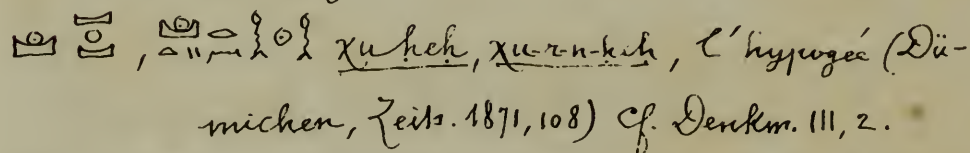 𓈌 , 𓈌 𓎛𓇳𓎛 χu ḥeḥ, χu-r-n-ḥeḥ, l'hypogeé (Dü-
michen, Zeits. 1871, 108) Cf. Denkm. III, 2.